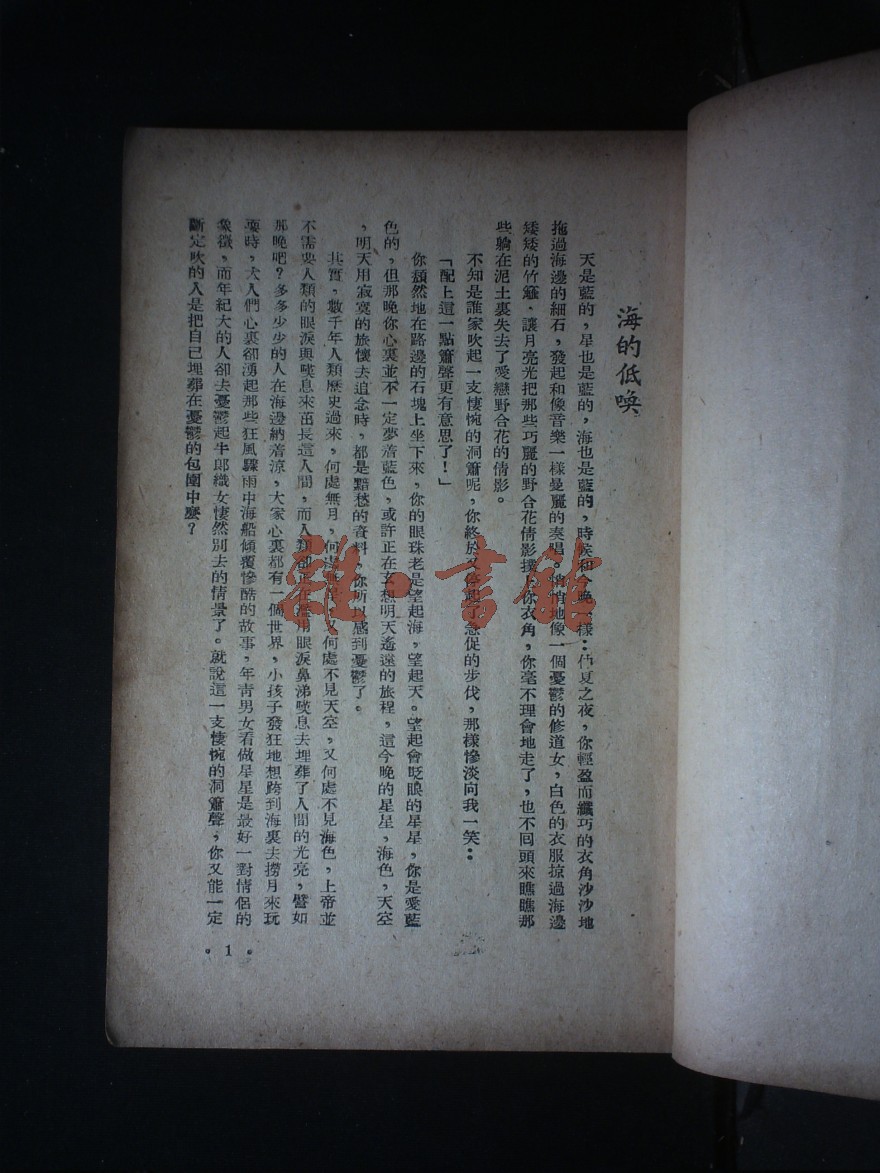 海的低喚
天是藍的，星也是藍的，海也是藍的，時候和今晚一樣：仲夏之夜，你輕盈而纖巧的衣角沙沙地
拖過海邊的細石，發起和像音樂一樣曼麗的奏唱，悄悄地像一個憂鬱的修道女，白色的衣服掠過海邊
矮矮的竹籬、讓月亮光把那些巧麗的野合花倩影撲了你衣角，你毫不理會地走了，也不回頭來瞧瞧那
些躺在泥土裏失去了愛戀野合花的倩影。
不知是誰家吹起一支悽惋的洞簫呢，你終於又停起了急促的步伐，那樣慘淡向我一笑：
「配上這一點簫聲更有意思了！」
你頹然地在路邊的石塊上坐下來，你的眼珠老是望起海，望起天。望起會眨眼的星星，你是愛藍
色的，但那晚你心裏並不一定夢着藍色，或許正在玄想明天遙遠的旅程，這今晚的星星，海色，天空
，明天用寂寞的旅懷去追念時，都是黯愁的資料，你所以感到憂鬱了。
其實，數千年人類歷史過來，何處無月，何處無又何處不見天空，又何處不見海色，上帝並
不需要人類的眼淚與嘆息來茁長這人間，而人類卻正在濫用眼淚鼻涕嘆息去埋葬了人間的光亮，譬如
那晚吧？多多少少的人在海邊納着涼，大家心裏都有一個世界，小孩子發狂地想跨到海裏去撈月來玩
耍時，大人們心裏卻湧起那些狂風驟雨中海船傾覆慘酷的故事，年青男女看做星星是最好一對情侶的
象徵，而年紀大的人卻去憂鬱起牛郎織女悽然別去的情景了。就說這一支悽惋的洞簫聲，你又能一定
斷定吹的人是把自己埋葬在憂鬱的包圍中麼？
•1•
雜·書館